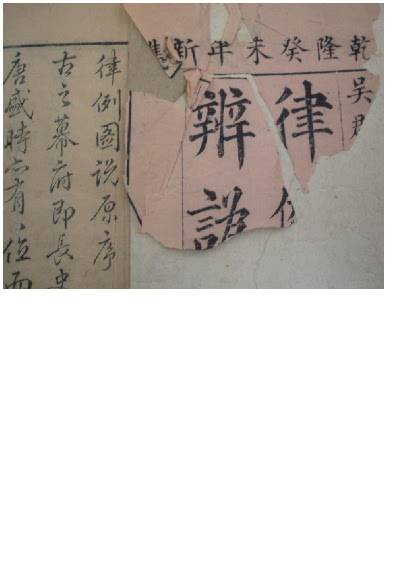 乾隆癸未年新
吳君
律例
辨説
律例圖説原序
古之幕府即長史
唐盛時亦有位而